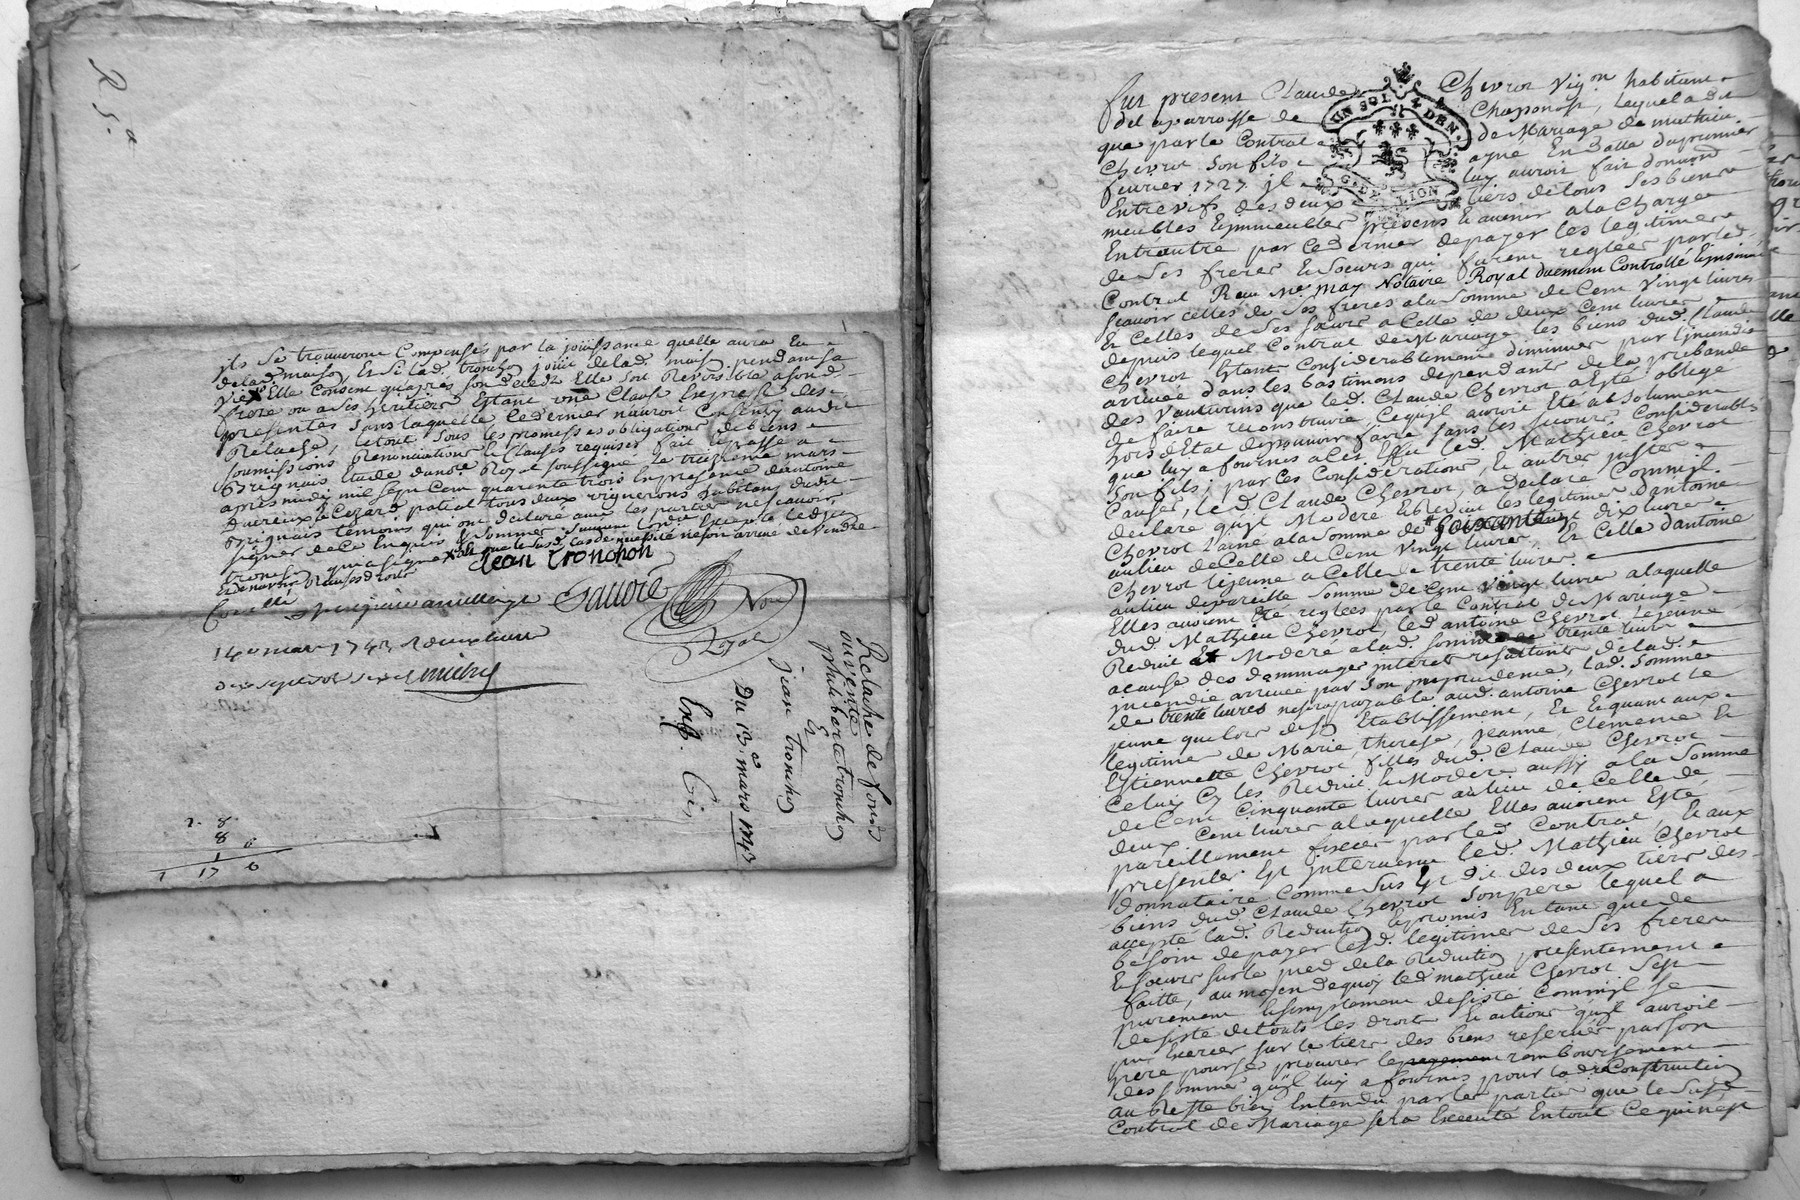 R 5.a
ils se trouveront Compensés par la joüissance quelle aura Eu
delad. maison, Et si lad. tronchon joüit delad. maison pendant sa
vie Elle Consent qu'apres son deced Elle soit Reversible a son d.
frere ou a ses heritiers Estant une Clause Expresse des
presentes sans laquelle Ce dernier nauroit Consenty audit
Relache, letout sous les promesses obligations de biens
soumissions Renonciations & Clauses requises, fait & passé a
Brignais Etude dunore Royal soussigné Le treizieme mars
apres midy mil sept Cent quarente trois En presence dantoine
ducreux & Cezard patial tous deux vignerons habitans dudit
Brignais temoins qui ont declaré avec les parties ne scavoir
signer dece Enquis & sommés suivant Lord.ce Excepté led. jean
tronchon qui a signé
Jean tronchon
Sauvre Nore
Royal
Controllé
14e mars 1743 Reçu
Relache de fonds
ou vente
Et
philiberte tronchon
jean tronchon
Du 13e mars 1743
Enf. Cis
2. 8
8 6
1
1 17 6
UN SOL 4 DEN.
G. DE LION
fut present Claude Chevrot Vig.on habitant
del aparroisse de Chaponost, Lequel a dit
que par le Contrat de Mariage de mathieu
Chevrot son fils ayné En Datte du premier
fevrier 1727 jl luy auroit fait donnaon
Entrevifs des deux tiers de tous ses biens
meubles & jmmeubles presens & avenir ala Charge
Entrautre par Ce dernier depayer les legitimes
de ses freres & soeurs qui furent reglées parled.
Contrat Reçu Me may Notaire Royal duement Controllé & jnsinué
scavoir celles de ses freres ala somme de Cent vingt livres
Et Celles de ses soeurs a Celle de deux Cent livres
depuis lequel Contrat de Mariage les biens dud. Claude
Chevrot Etant Considerablement diminués par lincendie
arrivée dans les bastimens dependants de la prebande
des Vauturins que led. Claude Chevrot a Esté obligé
de faire reconstruire, Cequ'jl auroit Eté absolument
hors d'Etat depouvoir faire sans les secours Considerables
que luy a fournis a Cet Effet led. Mathieu Chevrot
son fils; par Ces Considerations, & autres justes
Causes, led. Claude Chevrot, a declaré Comme jl
declare qu'jl Modere & Reduit les legitimes dantoine
Chevrot L'ainé ala somme de soixante dix livres
aulieu de Celle de Cent vingt livres, Et Celle d'antoine
Chevrot lejeune a Celle de trente livres
aulieu depareille somme de Cent vingt livres alaquelle
Elles avoient Eté reglées par le Contrat de Mariage
dud. Mathieu Chevrot, led. antoine Chevrot Lejeune
Reduit Et Moderé alad. somme de trente livres
acause des dommages jnterets resultants delad.
jncendie arrivée par son jmprudence, lad. somme
de trente livres nesera payable aud. antoine Chevrot le
jeune que lors de son Etablissement, Et Equant aux
legitime de Marie therese, jeanne, Clemence Et
Estiennette Chevrot filles dud. Claude Chevrot
Celuy Cy les Reduit & Modere aussy ala somme
de Cent Cinquante livres aulieu de Celle de
deux Cent livres alaquelle Elles avoient Esté
pareillement fixées parled. Contrat, & aux
presentes Est jntervenu led. Mathieu Chevrot
donnataire Comme sus Est dit des deux tiers des
biens dud. Claude Chevrot son pere lequel a
accepté lad. Reduction & promis En tant que de
besoin de payer lesd. legitimes de ses freres
& soeurs sur le pied de la Reduction presentement
faitte, au moyen dequoy led. mathieu Chevrot sest
purement & simplement desisté Comme jl se
desiste de touts les droits & actions qu'jl auroit
pu Exercer sur le tiers des biens reservés par son
pere pour se procurer le payement rembourssement
des somme qu'jl luy a fournis pour lad. reConstruction
au Reste bien Entendu par les parties que le susd.
Contrat de Mariage sera Executé En tout Ce qui n'est